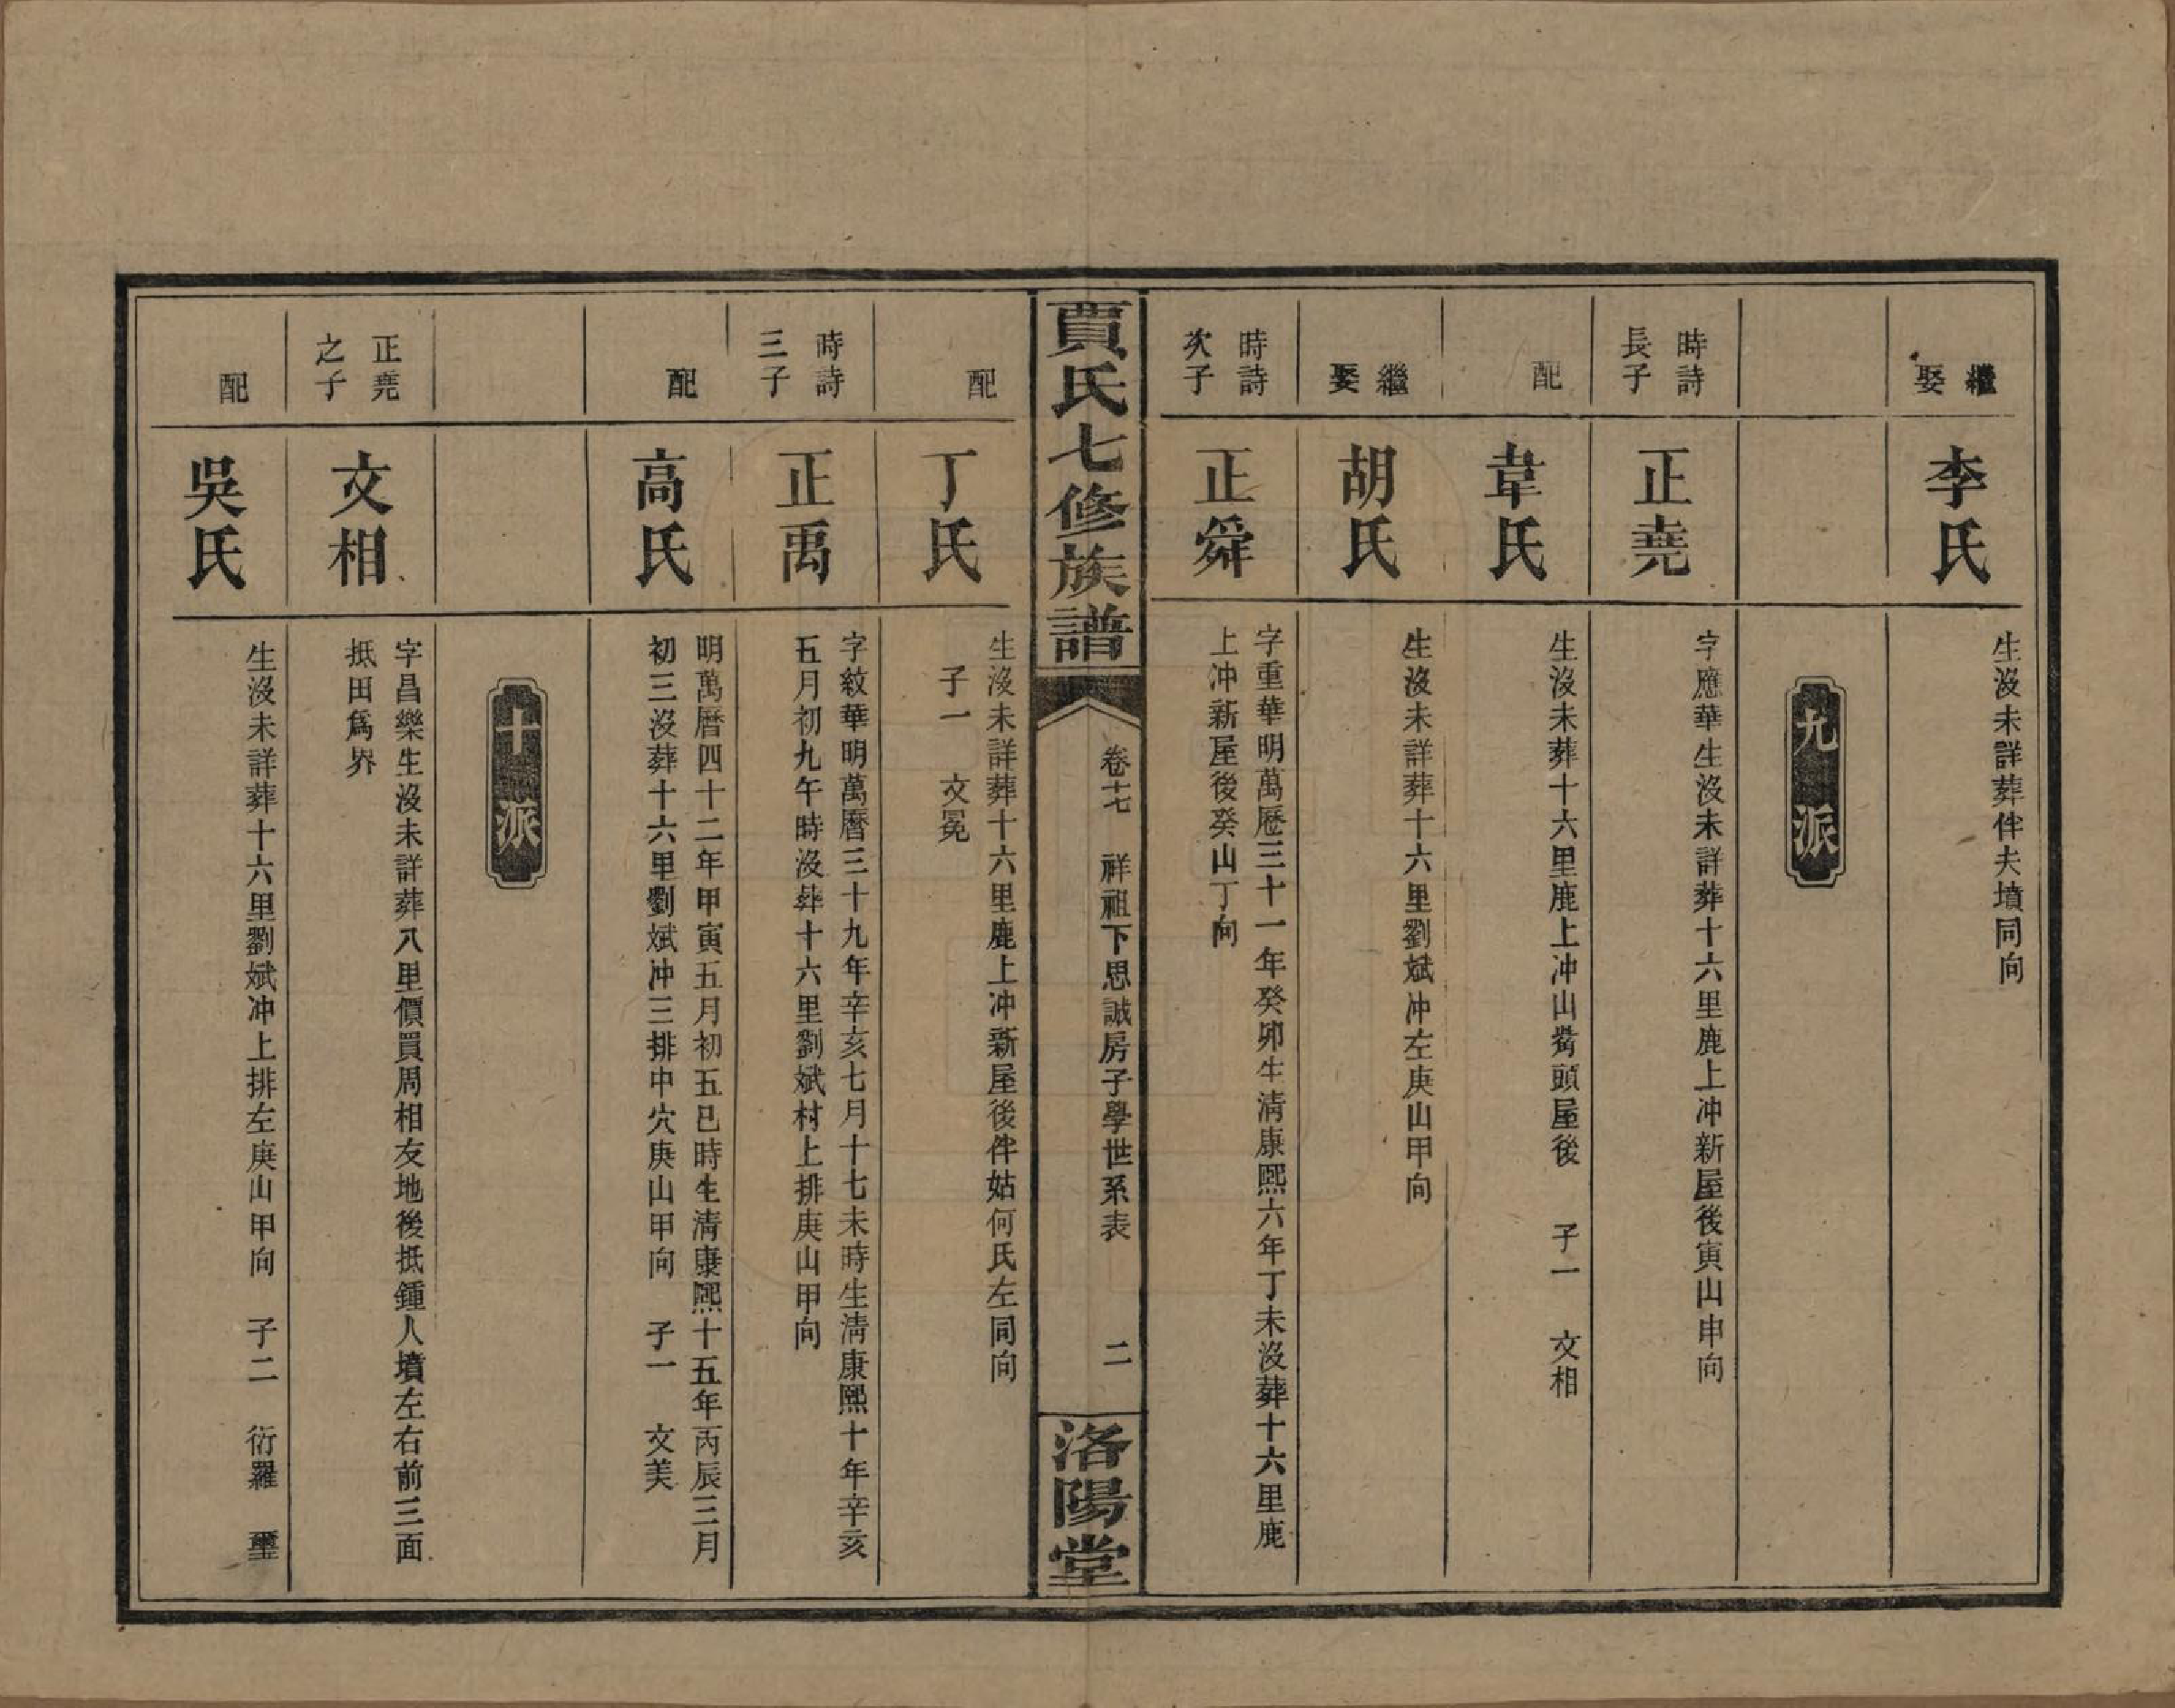 繼娶
李氏
生沒未詳葬伴夫墳同向
九派
時詩長子
正堯
字應華生沒未詳葬十六里鹿上冲新屋後寅山申向
配
韋氏
生沒未葬十六里鹿上冲山觜頭屋後 子一 文相
繼娶
胡氏
生沒未詳葬十六里劉斌冲左庚山甲向
時詩次子
正舜
字重華明萬歷三十一年癸卯生清康熙六年丁未沒葬十六里鹿
上冲新屋後癸山丁向
賈氏七修族譜
卷十七 祥祖下思誠房子學世系表 二
洛陽堂
配
丁氏
生沒未詳葬十六里鹿上冲新屋後伴姑何氏左同向
子一 文冕
時詩三子
正禹
字紋華明萬曆三十九年辛亥七月十七未時生清康熙十年辛亥
五月初九午時沒葬十六里劉斌村上排庚山甲向
配
高氏
明萬曆四十二年甲寅五月初五巳時生清康熙十五年丙辰三月
初三沒葬十六里劉斌冲三排中穴庚山甲向 子一 文美
十派
正堯之子
文相
字昌樂生沒未詳葬八里價買周相友地後抵鍾人墳左右前三面
抵田爲界
配
吳氏
生沒未詳葬十六里劉斌冲上排左庚山甲向 子二 衍羅 璽